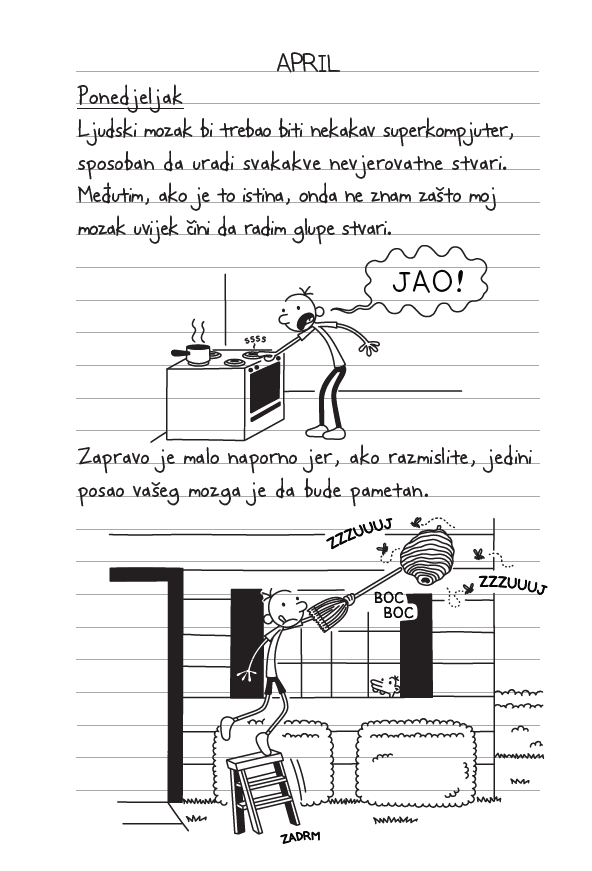 APRIL
Ponedjeljak
Ljudski mozak bi trebao biti nekakav superkompjuter,
sposoban da uradi svakakve nevjerovatne stvari.
Međutim, ako je to istina, onda ne znam zašto moj
mozak uvijek čini da radim glupe stvari.
JAO!
ssss
Zapravo je malo naporno jer, ako razmislite, jedini
posao vašeg mozga je da bude pametan.
ZZZUUUJ
ZZZUUUJ
BOC
BOC
ZADRM